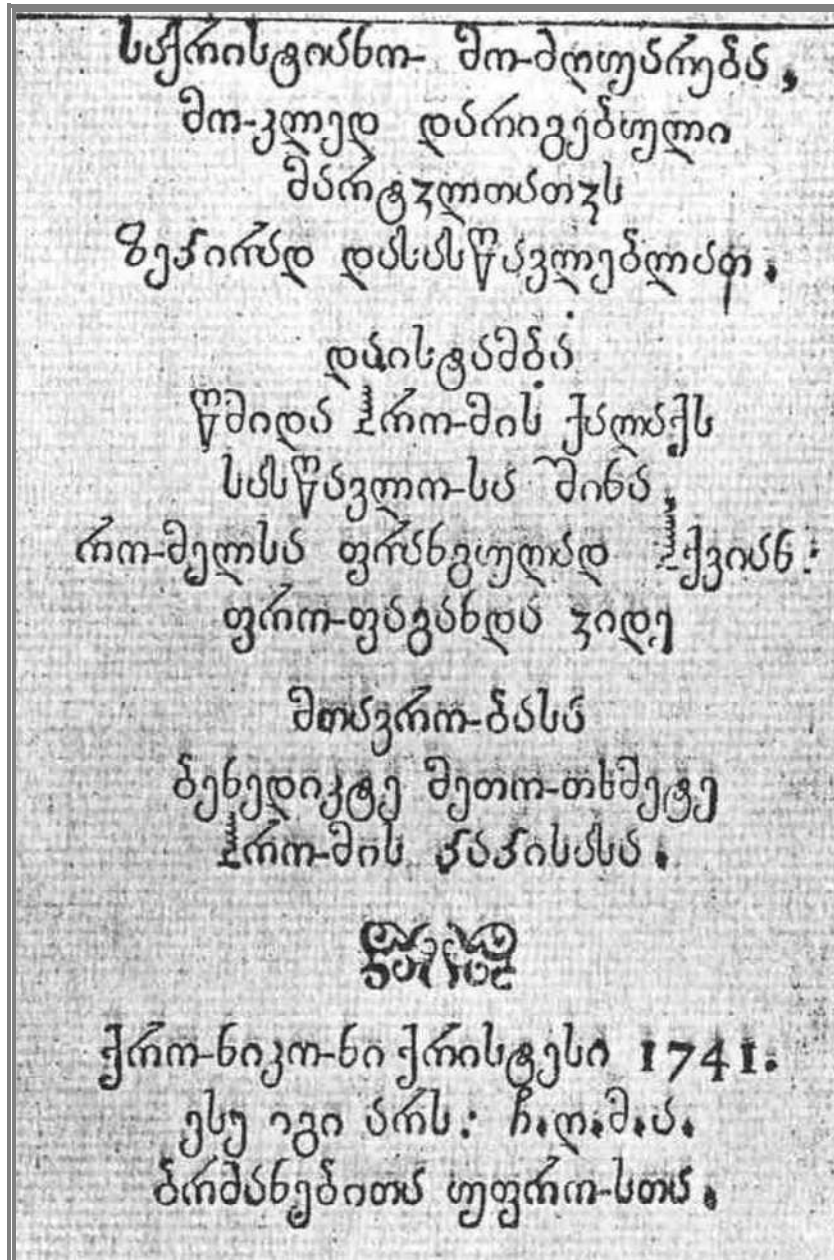 საქრისტიანო- მო-ძღუარება,
მო-კლედ დარიგებული
მარტჳლთათჳს
ზეპირად დასასწავლებლათ.
დაისტამბა
წმიდა ჰრო-მის ქალაქს
სასწავლო-სა შინა,
რო-მელსა ფრანგულად ჰქვიან:
ფრო-ფაგანდა ჳიდე
მთავრო-ბასა
ბენედიკტე მეთო-თხმეტე
ჰრო-მის პაპისასა.
ქრო-ნიკო-ნი ქრისტესი 1741.
ესე იგი არს: ჩ.ღ.მ.ა.
ბრძანებითა უფრო-სთა.